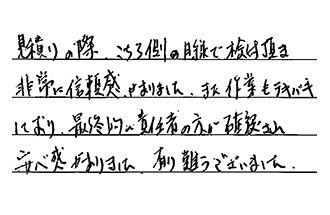 見積りの際、こちら側の目線で検討頂き
非常に信頼感がありました。また作業もテキパキ
しており、最終的に責任者の方が確認され
安心感がありました。有り難うございました。